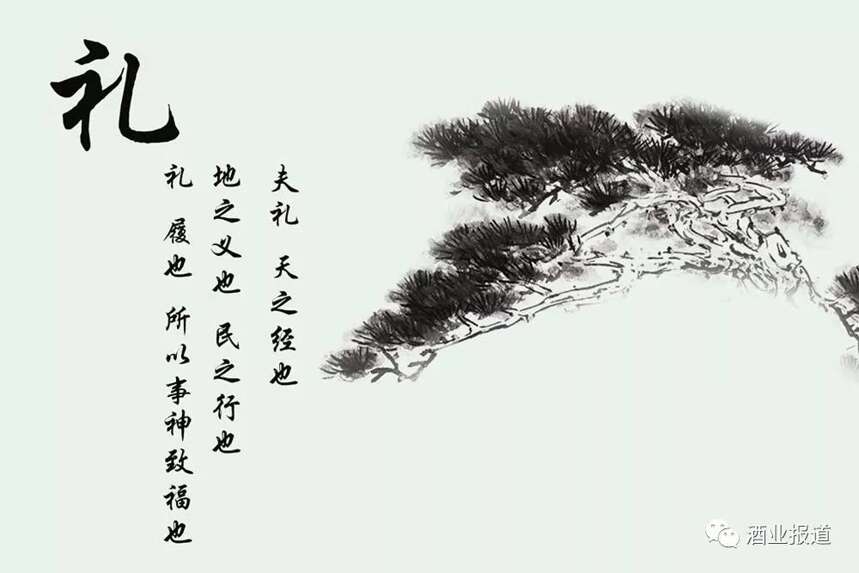 礼
夫礼 天之经也
地之义也 民之行也
礼 履也 所以事神致福也
酒业报道